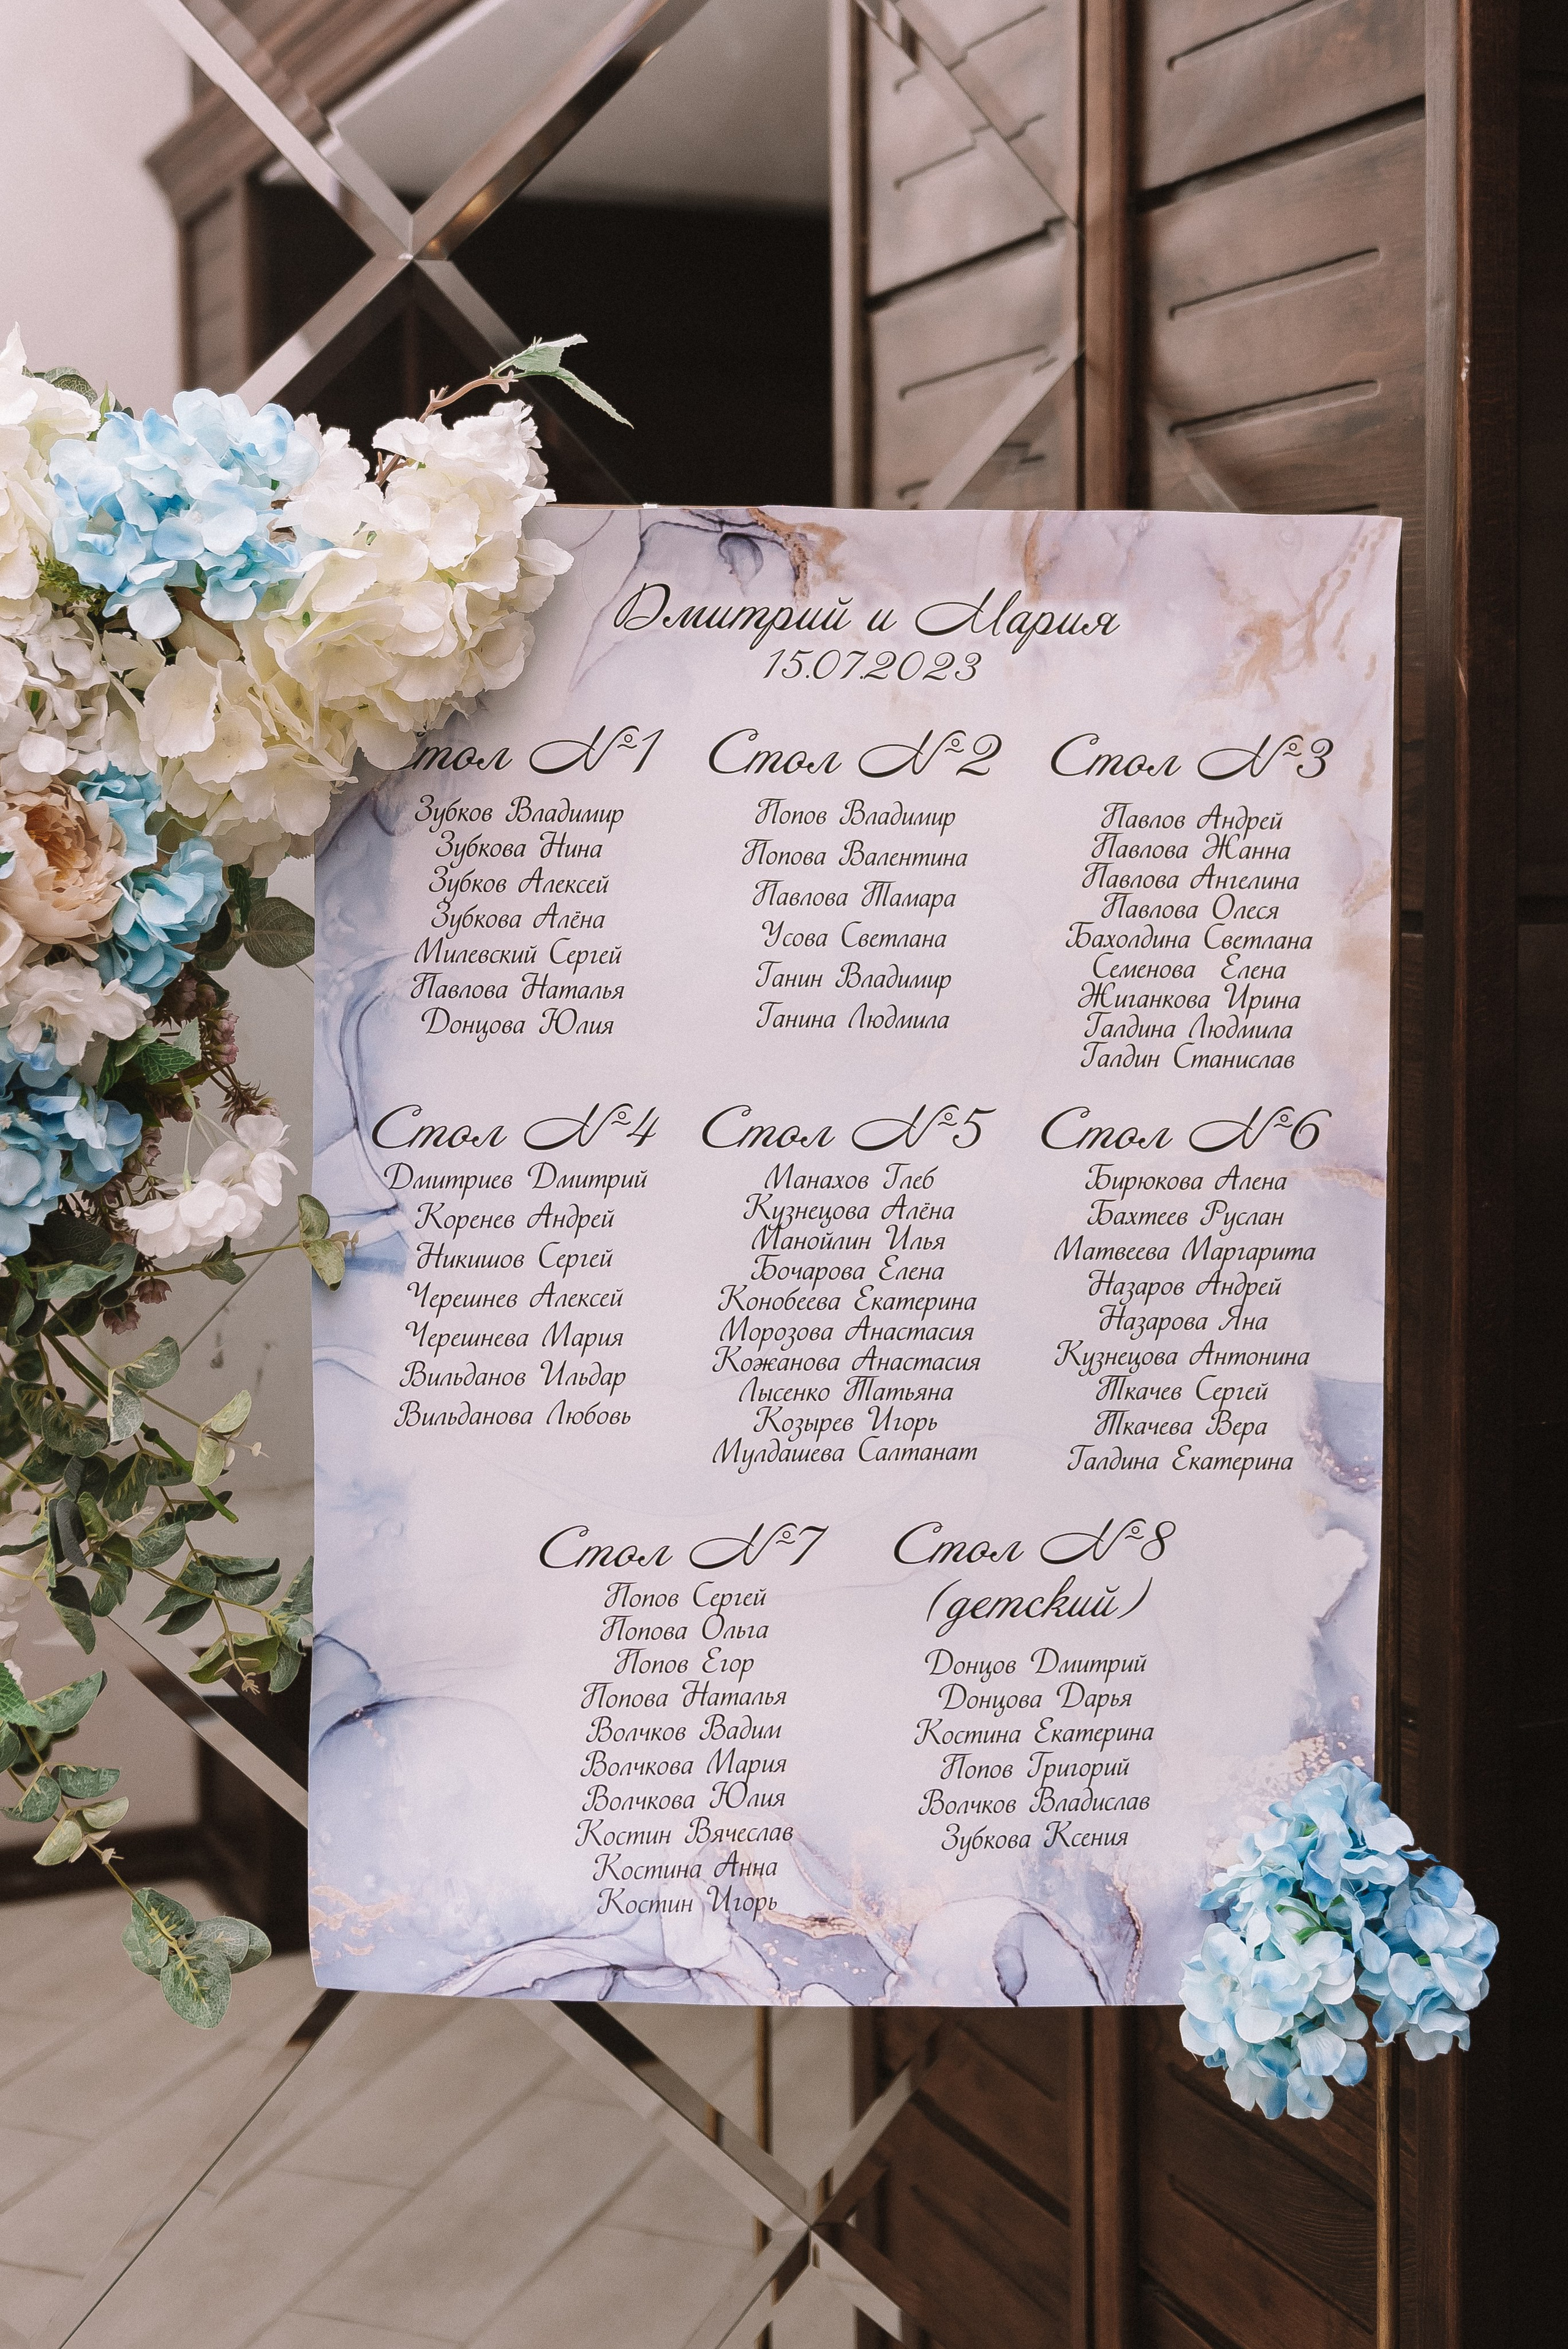 Дмитрий и Мария
15.07.2023
Стол №1
Зубков Владимир
Зубкова Нина
Зубков Алексей
Зубкова Алёна
Милевский Сергей
Павлова Наталья
Донцова Юлия
Стол №2
Попов Владимир
Попова Валентина
Павлова Тамара
Усова Светлана
Ганин Владимир
Ганина Людмила
Стол №3
Павлов Андрей
Павлова Жанна
Павлова Ангелина
Павлова Олеся
Бахолдина Светлана
Семенова Елена
Жиганкова Ирина
Галдина Людмила
Галдин Станислав
Стол №4
Дмитриев Дмитрий
Коренев Андрей
Никишов Сергей
Черешнев Алексей
Черешнева Мария
Вильданов Ильдар
Вильданова Любовь
Стол №5
Манахов Глеб
Кузнецова Алёна
Манойлин Илья
Бочарова Елена
Конобеева Екатерина
Морозова Анастасия
Кожанова Анастасия
Лысенко Татьяна
Козырев Игорь
Мулдашева Салтанат
Стол №6
Бирюкова Алена
Бахтеев Руслан
Матвеева Маргарита
Назаров Андрей
Назарова Яна
Кузнецова Антонина
Ткачев Сергей
Ткачева Вера
Галдина Екатерина
Стол №7
Попов Сергей
Попова Ольга
Попов Егор
Попова Наталья
Волчков Вадим
Волчкова Мария
Волчкова Юлия
Костин Вячеслав
Костина Анна
Костин Игорь
Стол №8
(детский)
Донцов Дмитрий
Донцова Дарья
Костина Екатерина
Попов Григорий
Волчков Владислав
Зубкова Ксения